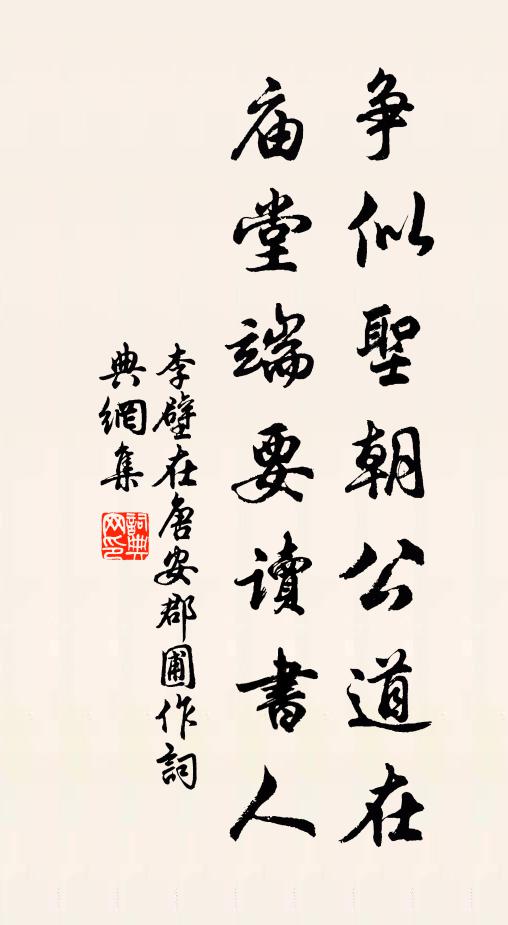 争似聖朝公道在
庙堂端要读書人
李壁在唐安郡圃作詞
典網集
詞典
网印